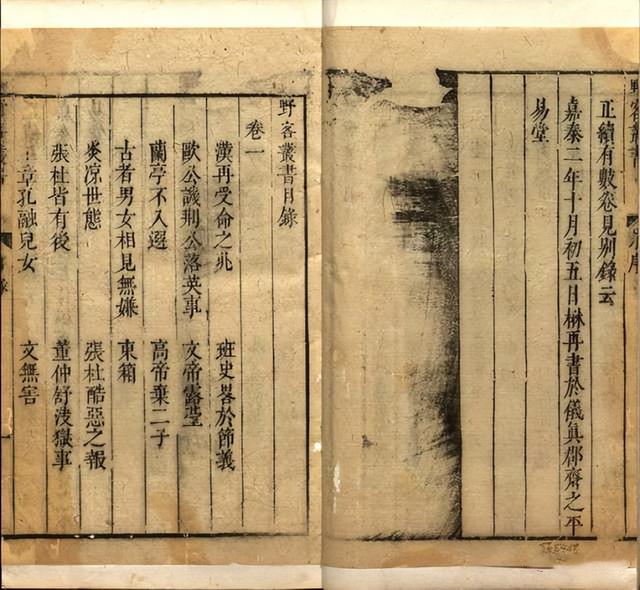 正續有數卷見別錄云
嘉泰二年十月初五日楙再書於儀真郡齋之平
易堂
野客叢書目錄
卷一
漢再受命之兆 班史畧於節義
歐公譏荆公落英事 文帝露臺
蘭亭不入選 高帝棄二子
古者男女相見無嫌 東箱
炎凉世態 張杜酷惡之報
張杜皆有後 董仲舒決獄事
王章孔融兒女 文無害